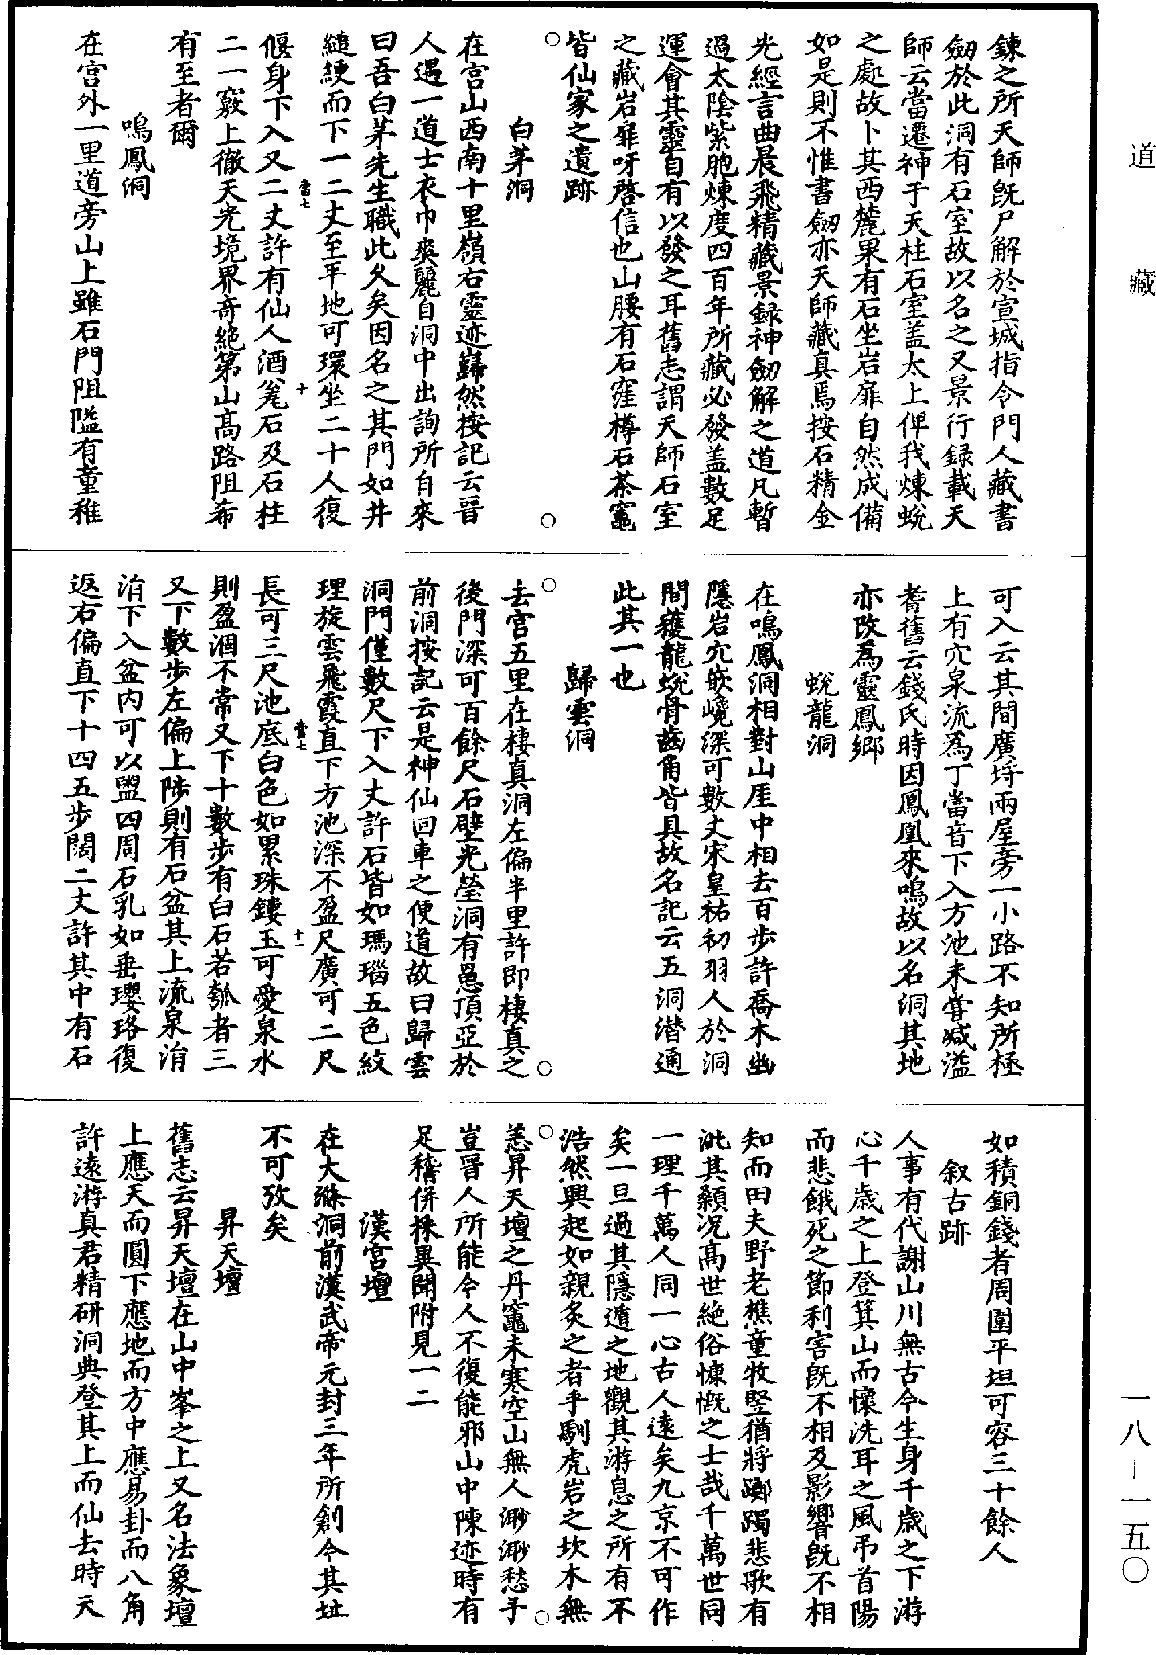 道藏
鍊之所天師旣尸解於宣城指令門人藏書
劒於此洞有石室故以名之又景行録載天
師云當遷神于天柱石室盖太上俾我煉蛻
之處故卜其西麓果有石坐岩扉自然成備
如是則不惟書劒亦天師藏真焉按石精金
光經言曲晨飛精藏景録神劒解之道凡暫
過太陰紫胞煉度四百年所藏必發盖數足
運會其靈自有以發之耳舊志謂天師石室
之藏岩扉呀啓信也山腰有石窪樽石茶竈
皆仙家之遺跡
白茅洞
在宫山西南十里嶺右靈迹巋然按記云晉
人遇一道士衣巾爽麗自洞中出詢所自來
曰吾白茅先生職此久矣因名之其門如井
縋綆而下一二丈至平地可環坐二十人復
當七 十
偃身下入又二丈許有仙人酒瓮石及石柱
二一竅上徹天光境界奇絶第山高路阻希
有至者爾
鳴鳳洞
在宫外一里道旁山上雖石門阻隘有童稚
可入云其間廣埒兩屋旁一小路不知所極
上有穴泉流爲丁當音下入方池未嘗減溢
耆舊云錢氏時因鳳凰來鳴故以名洞其地
亦改爲靈鳳鄉
蛻龍洞
在鳴鳳洞相對山厓中相去百步許喬木幽
隱岩穴嵌巉深可數丈宋皇祐初羽人於洞
間穫龍蛻骨齒角皆具故名記云五洞潜通
此其一也
歸雲洞
去宫五里在棲真洞左偏半里許即棲真之
後門深可百餘尺石壁光瑩洞有愚頂亞於
前洞按記云是神仙回車之便道故曰歸雲
洞門僅數尺下入丈許石皆如瑪瑙五色紋
理旋雲飛霞直下方池深不盈尺廣可二尺
當七 十一
長可三尺池底白色如累珠鏤玉可愛泉水
則盈涸不常又下十數步有白石若瓠者三
又下數步左偏上陟則有石盆其上流泉涓
涓下入盆内可以盥四周石乳如垂瓔珞復
返右偏直下十四五步闊二丈許其中有石
如積銅錢者周圍平坦可容三十餘人
叙古跡
人事有代謝山川無古今生身千歲之下游
心千歲之上登箕山而懷洗耳之風弔首陽
而悲餓死之節利害旣不相及影響旣不相
知而田夫野老樵童牧竪猶將躑躅悲歌有
泚其顙況高世絶俗慷慨之士哉千萬世同
一理千萬人同一心古人遠矣九京不可作
矣一旦過其隱遁之地觀其游息之所有不
浩然興起如親炙之者乎馴虎岩之坎木無
恙昇天壇之丹竈未寒空山無人渺渺愁予
豈晉人所能今人不復能邪山中陳迹時有
足稽併採異聞附見一二
漢宫壇
在大滌洞前漢武帝元封三年所創今其址
不可攷矣
昇天壇
舊志云昇天壇在山中峯之上又名法象壇
上應天而圓下應地而方中應易卦而八角
許遠游真君精研洞典登其上而仙去時天
一八—一五〇